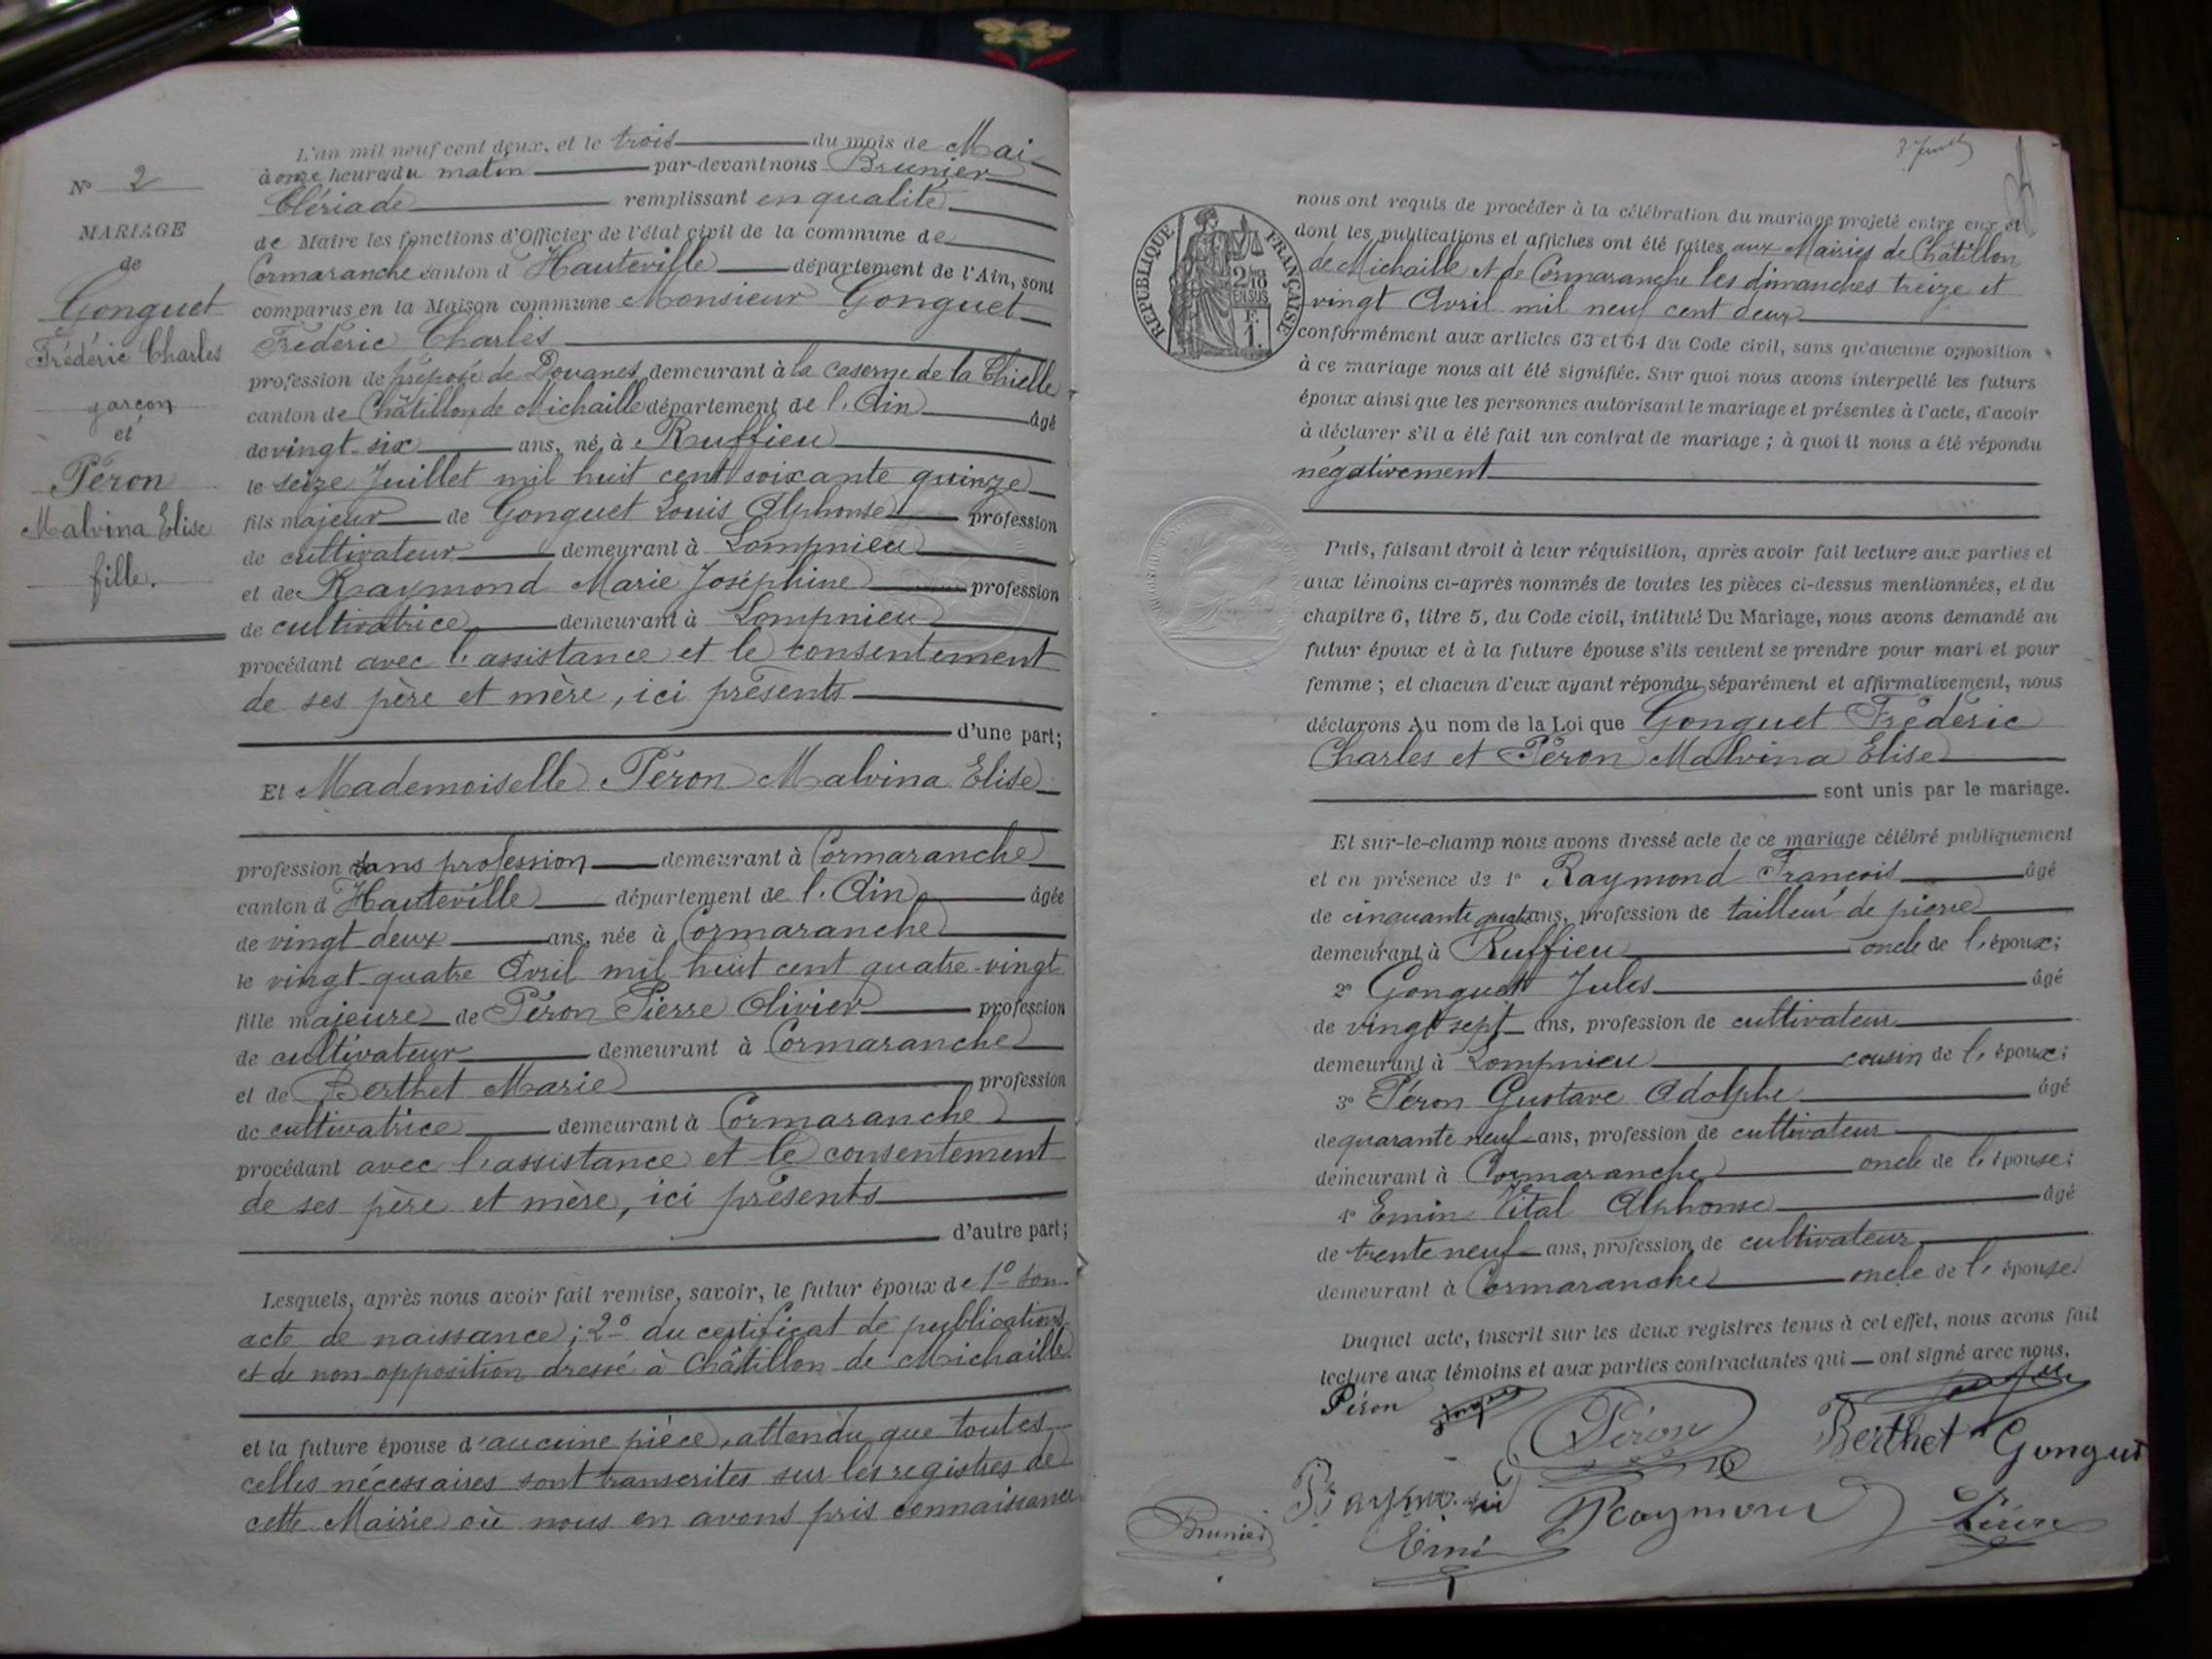 N° 2
MARIAGE
de
Gonguet
Frédéric Charles
garçon
et
Péron
Malvina Elise
fille.
L'an mil neuf cent deux, et le trois du mois de Mai
à onze heures du matin par-devant nous Brunier
Clériade remplissant en qualité
de Maire les fonctions d'Officier de l'état civil de la commune de
Cormaranche canton d'Hauteville département de l'Ain, sont
comparus en la Maison commune Monsieur Gonguet
Frédéric Charles
profession de préposé de Douanes demeurant à la caserne de la Chielle
canton de Châtillon de Michaille département de l'Ain âgé
de vingt-six ans, né à Ruffieu
le seize Juillet mil huit cent soixante quinze
fils majeur de Gonguet Louis Alphonse profession
de cultivateur demeurant à Lompnieu
et de Raymond Marie Joséphine profession
de cultivatrice demeurant à Lompnieu
procédant avec l'assistance et le consentement
de ses père et mère, ici présents
d'une part;
Et Mademoiselle Péron Malvina Elise
profession sans profession demeurant à Cormaranche
canton d'Hauteville département de l'Ain âgée
de vingt-deux ans, née à Cormaranche
le vingt-quatre Avril mil huit cent quatre-vingt
fille majeure de Péron Pierre Olivier profession
de cultivateur demeurant à Cormaranche
et de Berthet Marie profession
de cultivatrice demeurant à Cormaranche
procédant avec l'assistance et le consentement
de ses père et mère, ici présents
d'autre part;
Lesquels, après nous avoir fait remise, savoir, le futur époux de 1° son
acte de naissance; 2° du certificat de publications
et de non opposition dressé à Châtillon de Michaille
et la future épouse d'aucune pièce, attendu que toutes
celles nécessaires sont transcrites sur les registres de
cette Mairie où nous en avons pris connaissance
RÉPUBLIQUE FRANÇAISE
2/10
EN SUS
F.
1.
nous ont requis de procéder à la célébration du mariage projeté entre eux et
dont les publications et affiches ont été faites aux Mairies de Châtillon
de Michaille et de Cormaranche les dimanches treize et
vingt Avril mil neuf cent deux
conformément aux articles 63 et 64 du Code civil, sans qu'aucune opposition
à ce mariage nous ait été signifiée. Sur quoi nous avons interpellé les futurs
époux ainsi que les personnes autorisant le mariage et présentes à l'acte, d'avoir
à déclarer s'il a été fait un contrat de mariage; à quoi il nous a été répondu
négativement
Puis, faisant droit à leur réquisition, après avoir fait lecture aux parties et
aux témoins ci-après nommés de toutes les pièces ci-dessus mentionnées, et du
chapitre 6, titre 5, du Code civil, intitulé Du Mariage, nous avons demandé au
futur époux et à la future épouse s'ils veulent se prendre pour mari et pour
femme; et chacun d'eux ayant répondu séparément et affirmativement, nous
déclarons Au nom de la Loi que Gonguet Frédéric
Charles et Péron Malvina Elise
sont unis par le mariage.
Et sur-le-champ nous avons dressé acte de ce mariage célébré publiquement
et en présence de 1° Raymond François âgé
de cinquante quatre ans, profession de tailleur de pierre
demeurant à Ruffieu oncle de l'époux;
2° Gonguet Jules âgé
de vingt sept ans, profession de cultivateur
demeurant à Lompnieu cousin de l'époux;
3° Péron Gustave Adolphe âgé
de quarante neuf ans, profession de cultivateur
demeurant à Cormaranche oncle de l'épouse;
4° Emin Vital Alphonse âgé
de trente neuf ans, profession de cultivateur
demeurant à Cormaranche oncle de l'épouse
Duquel acte, inscrit sur les deux registres tenus à cet effet, nous avons fait
lecture aux témoins et aux parties contractantes qui ont signé avec nous.
Péron
Péron
Berthet Gonguet
Raymond
Raymond
Brunier
Emin